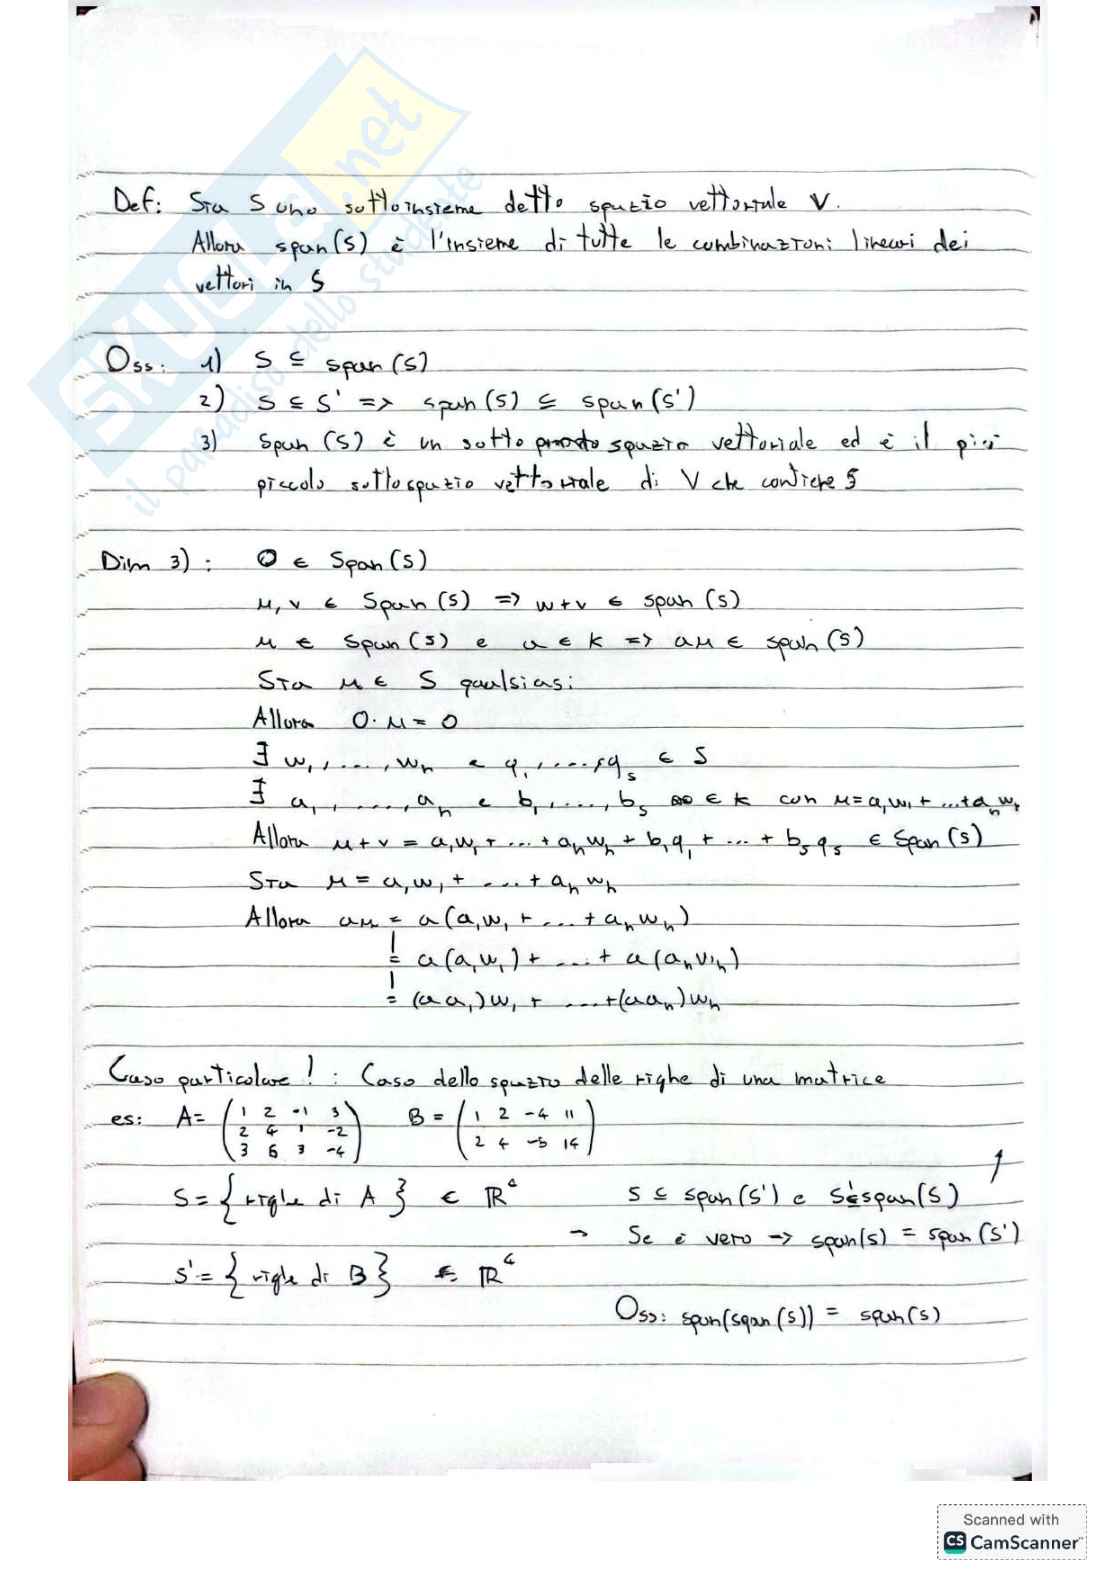 SKUOLA.net
il paradiso dello studente
Def: Sia S uno sottoinsieme detto spazio vettoriale V.
Allora span(S) è l'insieme di tutte le combinazioni lineari dei
vettori in S
Oss: 1) S ⊆ span(S)
2) S ⊆ S' => span(S) ⊆ span(S')
3) Span (S) è un sotto spazio vettoriale ed è il più
piccolo sottospazio vettoriale di V che contiene S
Dim 3): 0 ∈ Span(S)
u, v ∈ Span(S) => w+v ∈ span(S)
u ∈ Span(S) e a ∈ k => au ∈ span(S)
Sia u ∈ S qualsiasi
Allora 0·u = 0
∃ w₁, ..., wₙ e q₁, ..., qₛ ∈ S
∃ a₁, ..., aₙ e b₁, ..., bₛ ∈ k con u = a₁w₁ + ... + aₙwₙ
Allora u+v = a₁w₁ + ... + aₙwₙ + b₁q₁ + ... + bₛqₛ ∈ Span(S)
Sia u = a₁w₁ + ... + aₙwₙ
Allora au = a(a₁w₁ + ... + aₙwₙ)
= a(a₁w₁) + ... + a(aₙwₙ)
= (aa₁)w₁ + ... + (aaₙ)wₙ
Caso particolare! : Caso dello spazio delle righe di una matrice
es: A= (1 2 -1 3 B = (1 2 -4 11
2 4 1 -2 2 4 -5 14)
3 6 3 -4)
S = { righe di A } ∈ ℝ⁴ S ⊆ span(S') e S'⊆span(S)
→ Se è vero → span(S) = span(S')
S' = { righe di B } ∈ ℝ⁴
Oss: span(span(S)) = span(S)
Scanned with
CS CamScanner